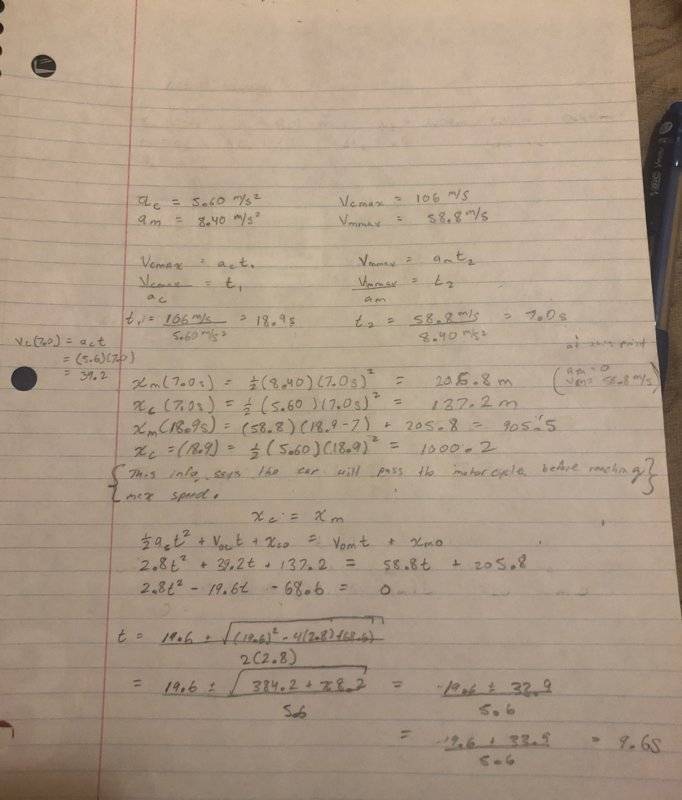 a_c = 5.60 m/s²    V_cmax = 106 m/s
a_m = 8.40 m/s²    V_mmax = 58.8 m/s
V_cmax = a_c t₁    V_mmax = a_m t₂
V_cmax/a_c = t₁    V_mmax/a_m = t₂
t₁ = 106 m/s / 5.60 m/s² = 18.9s    t₂ = 58.8 m/s / 8.40 m/s² = 7.0s
V_c(7.0) = a_c t
= (5.6)(7.0)
= 39.2
at point
(a_m = 0
V_m = 58.8 m/s)
x_m(7.0s) = ½(8.40)(7.0s)² = 205.8 m
x_c(7.0s) = ½(5.60)(7.0s)² = 137.2 m
x_m(18.9s) = (58.8)(18.9-7) + 205.8 = 905.5
x_c = (18.9) = ½(5.60)(18.9)² = 1000.2
{This info says the car will pass the motorcycle before reaching
max speed.}
x_c = x_m
½a_c t² + V_oc t + x_co = V_om t + x_mo
2.8t² + 39.2t + 137.2 = 58.8t + 205.8
2.8t² - 19.6t - 68.6 = 0
t = 19.6 ± √((19.6)² - 4(2.8)(68.6)) / 2(2.8)
= 19.6 ± √(384.2 + 768.2) / 5.6 = -19.6 ± 33.9 / 5.6
= -19.6 + 33.9 / 5.6 = 9.6s